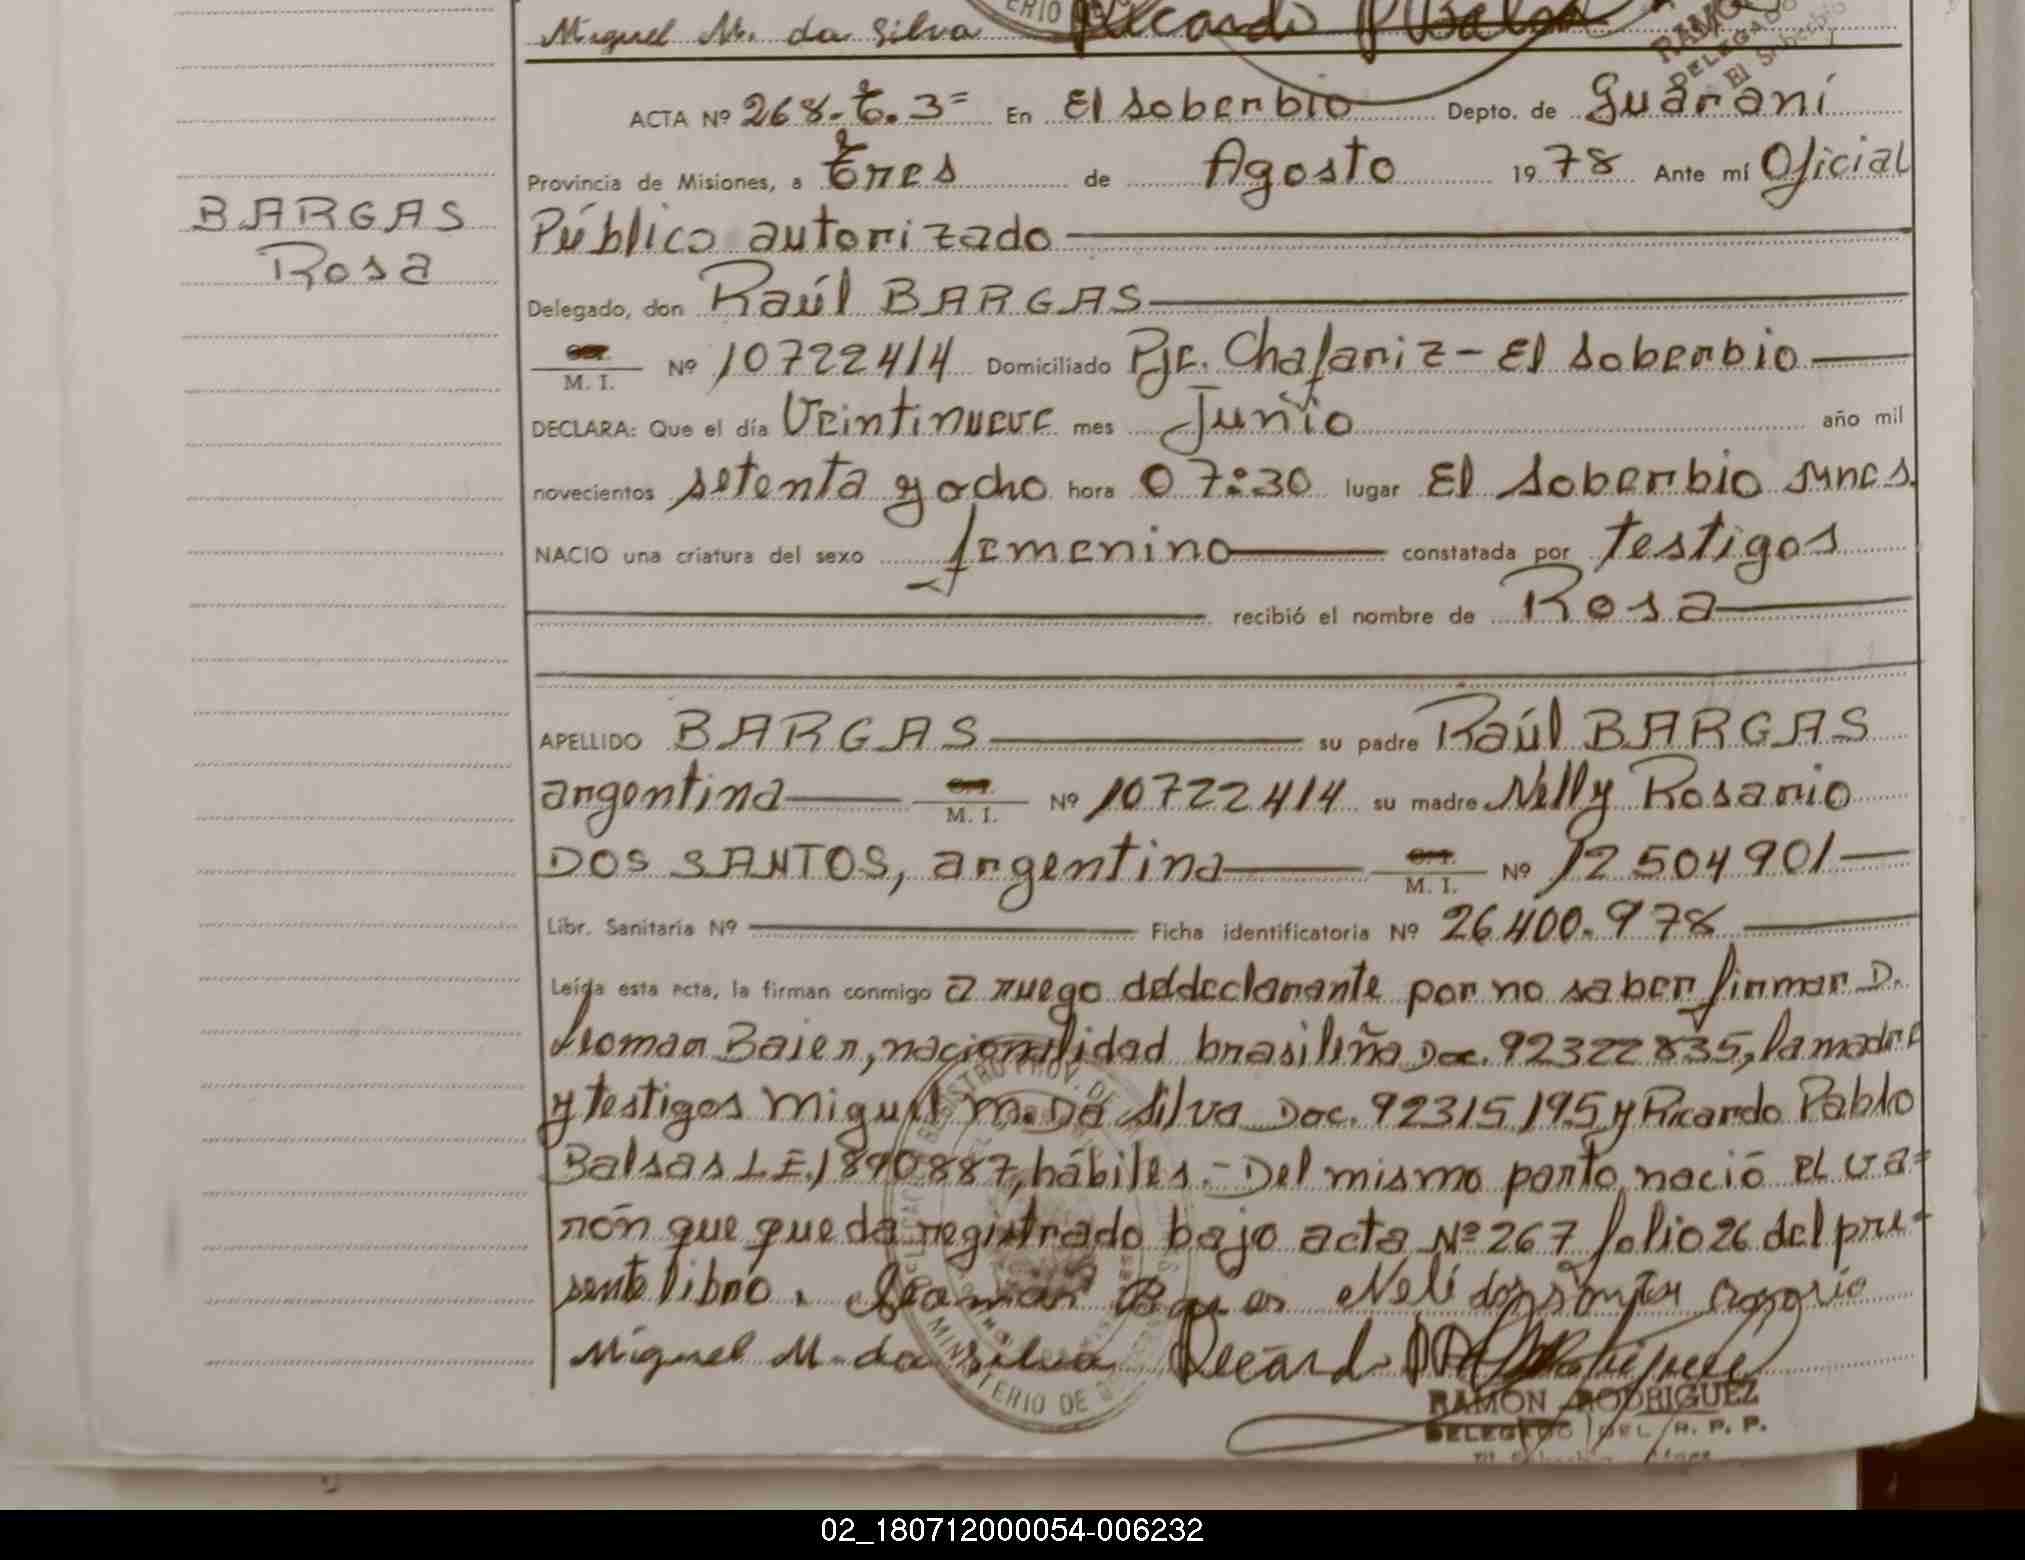 Miguel M. da Silva Ricardo P Balsa
ACTA Nº 268-T.3= En El Soberbio Depto. de Guaraní
Provincia de Misiones, a Tres de Agosto 1978 Ante mí Oficial
Público autorizado
BARGAS
Rosa
Delegado, don Raúl BARGAS
M. I. Nº 10722414 Domiciliado Pje. Chafariz - El Soberbio
DECLARA: Que el día Veintinueve mes Junio año mil
novecientos setenta y ocho hora 07:30 lugar El Soberbio Mnes.
NACIO una criatura del sexo femenino constatada por testigos
recibió el nombre de Rosa
APELLIDO BARGAS su padre Raúl BARGAS
argentina M. I. Nº 10722414 su madre Nelly Rosario
DOS SANTOS, argentina M. I. Nº 12504901
Libr. Sanitaria Nº Ficha identificatoria Nº 26.400.978
Leída esta acta, la firman conmigo a ruego del declarante por no saber firmar D.
Leomar Baier, nacionalidad brasileña Doc. 92322835, la madre
y testigos Miguel M. Da Silva Doc. 92315195 y Ricardo Pablo
Balsas L.E. 1890887, hábiles.- Del mismo parto, nació el va=
rón que queda registrado bajo acta Nº 267 folio 26 del pre-
sente libro. Leomar Baier Neli dos santos rosario
Miguel M. da Silva Ricardo P
RAMON RODRIGUEZ
DELEGADO DEL R. P. P.
02_180712000054-006232